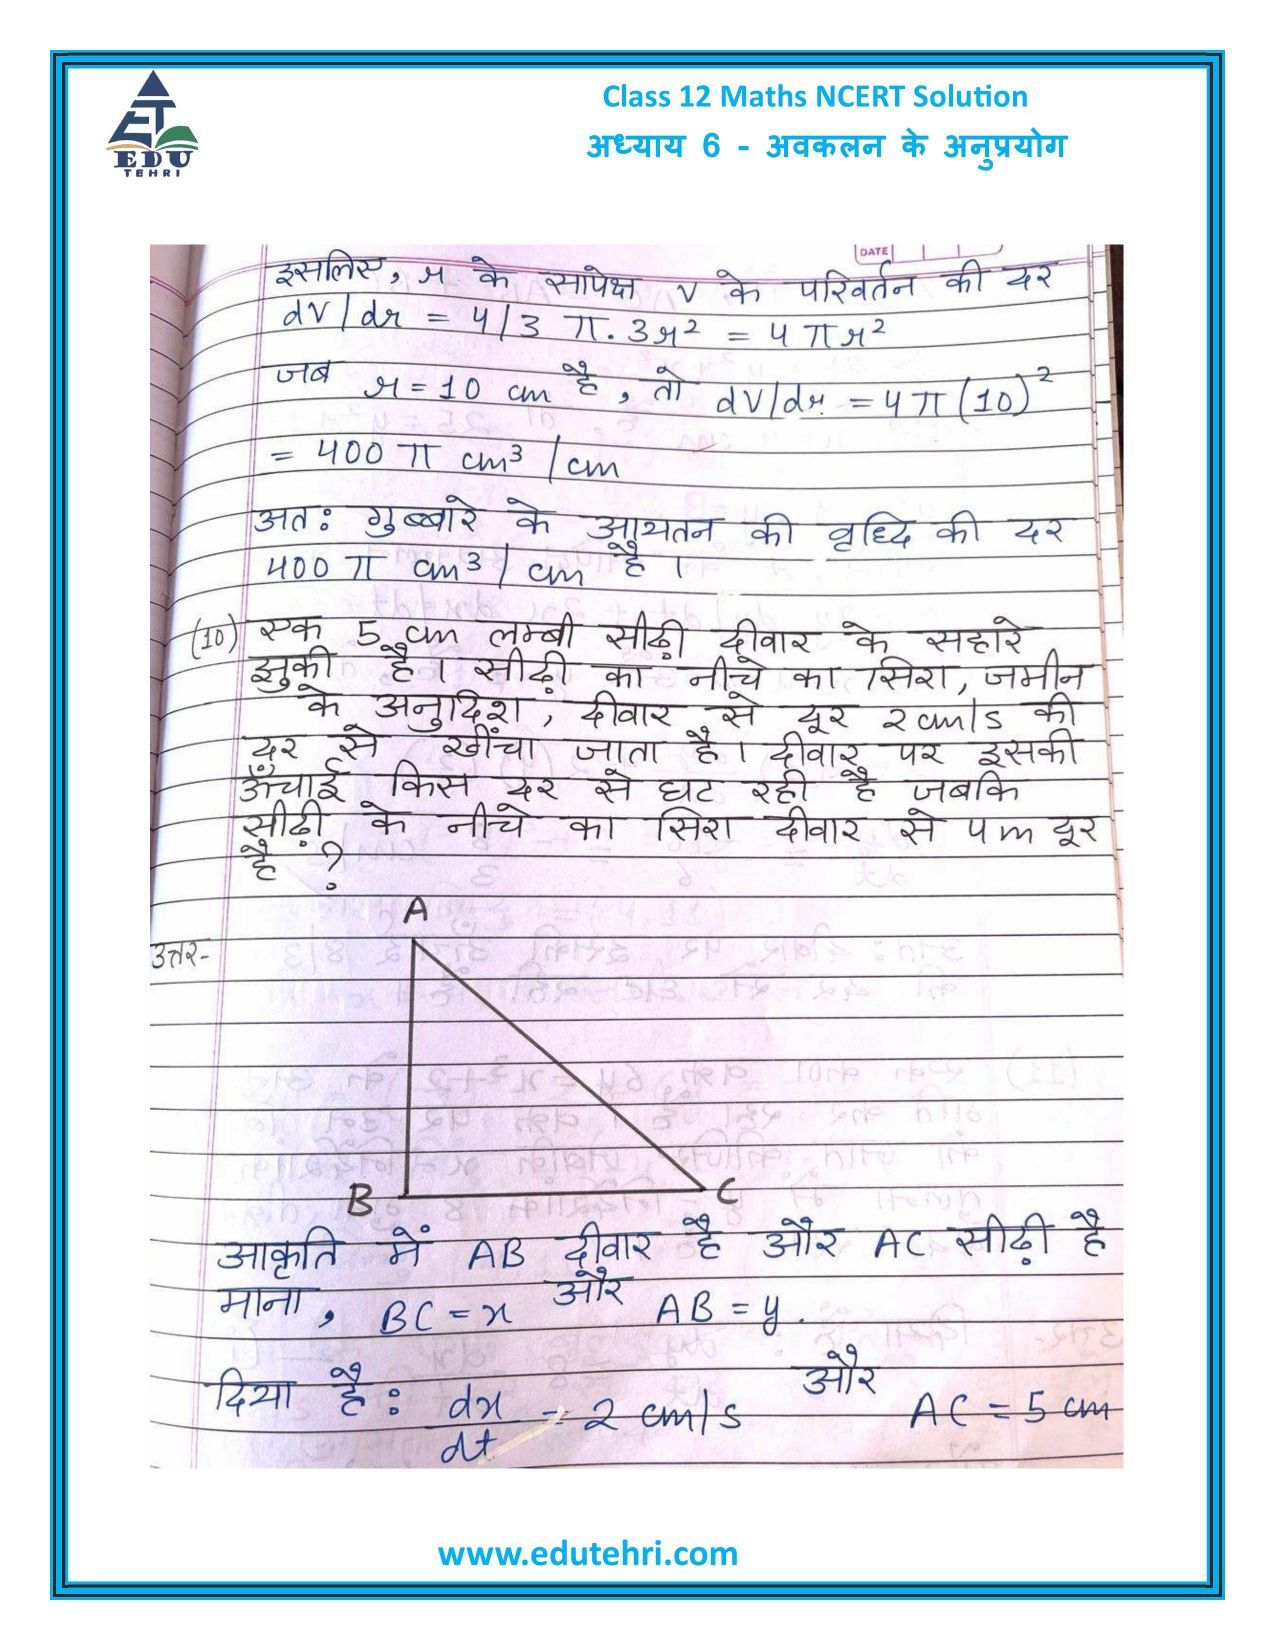 ET
EDU
TEHRI
Class 12 Maths NCERT Solution
अध्याय 6 - अवकलन के अनुप्रयोग
DATE
इसलिए, r के सापेक्ष v के परिवर्तन की दर
dV/dr = 4/3 π.3r² = 4πr²
जब r = 10 cm है, तो dV/dr = 4π(10)²
= 400 π cm³ / cm
अतः गुब्बारे के आयतन की वृध्दि की दर
400 π cm³/ cm है ।
(10) एक 5 cm लम्बी सीढ़ी दीवार के सहारे
झुकी है। सीढ़ी का नीचे का सिरा, जमीन
के अनुदिश, दीवार से दूर 2cm/s की
दर से खींचा जाता है। दीवार पर इसकी
ऊँचाई किस दर से घट रही है जबकि
सीढ़ी के नीचे का सिरा दीवार से 4m दूर
है ?
A
उत्तर-
B C
आकृति में AB दीवार है और AC सीढ़ी है
माना, BC = x और AB = y.
दिया है : dx/dt = 2 cm/s और AC = 5 cm
www.edutehri.com